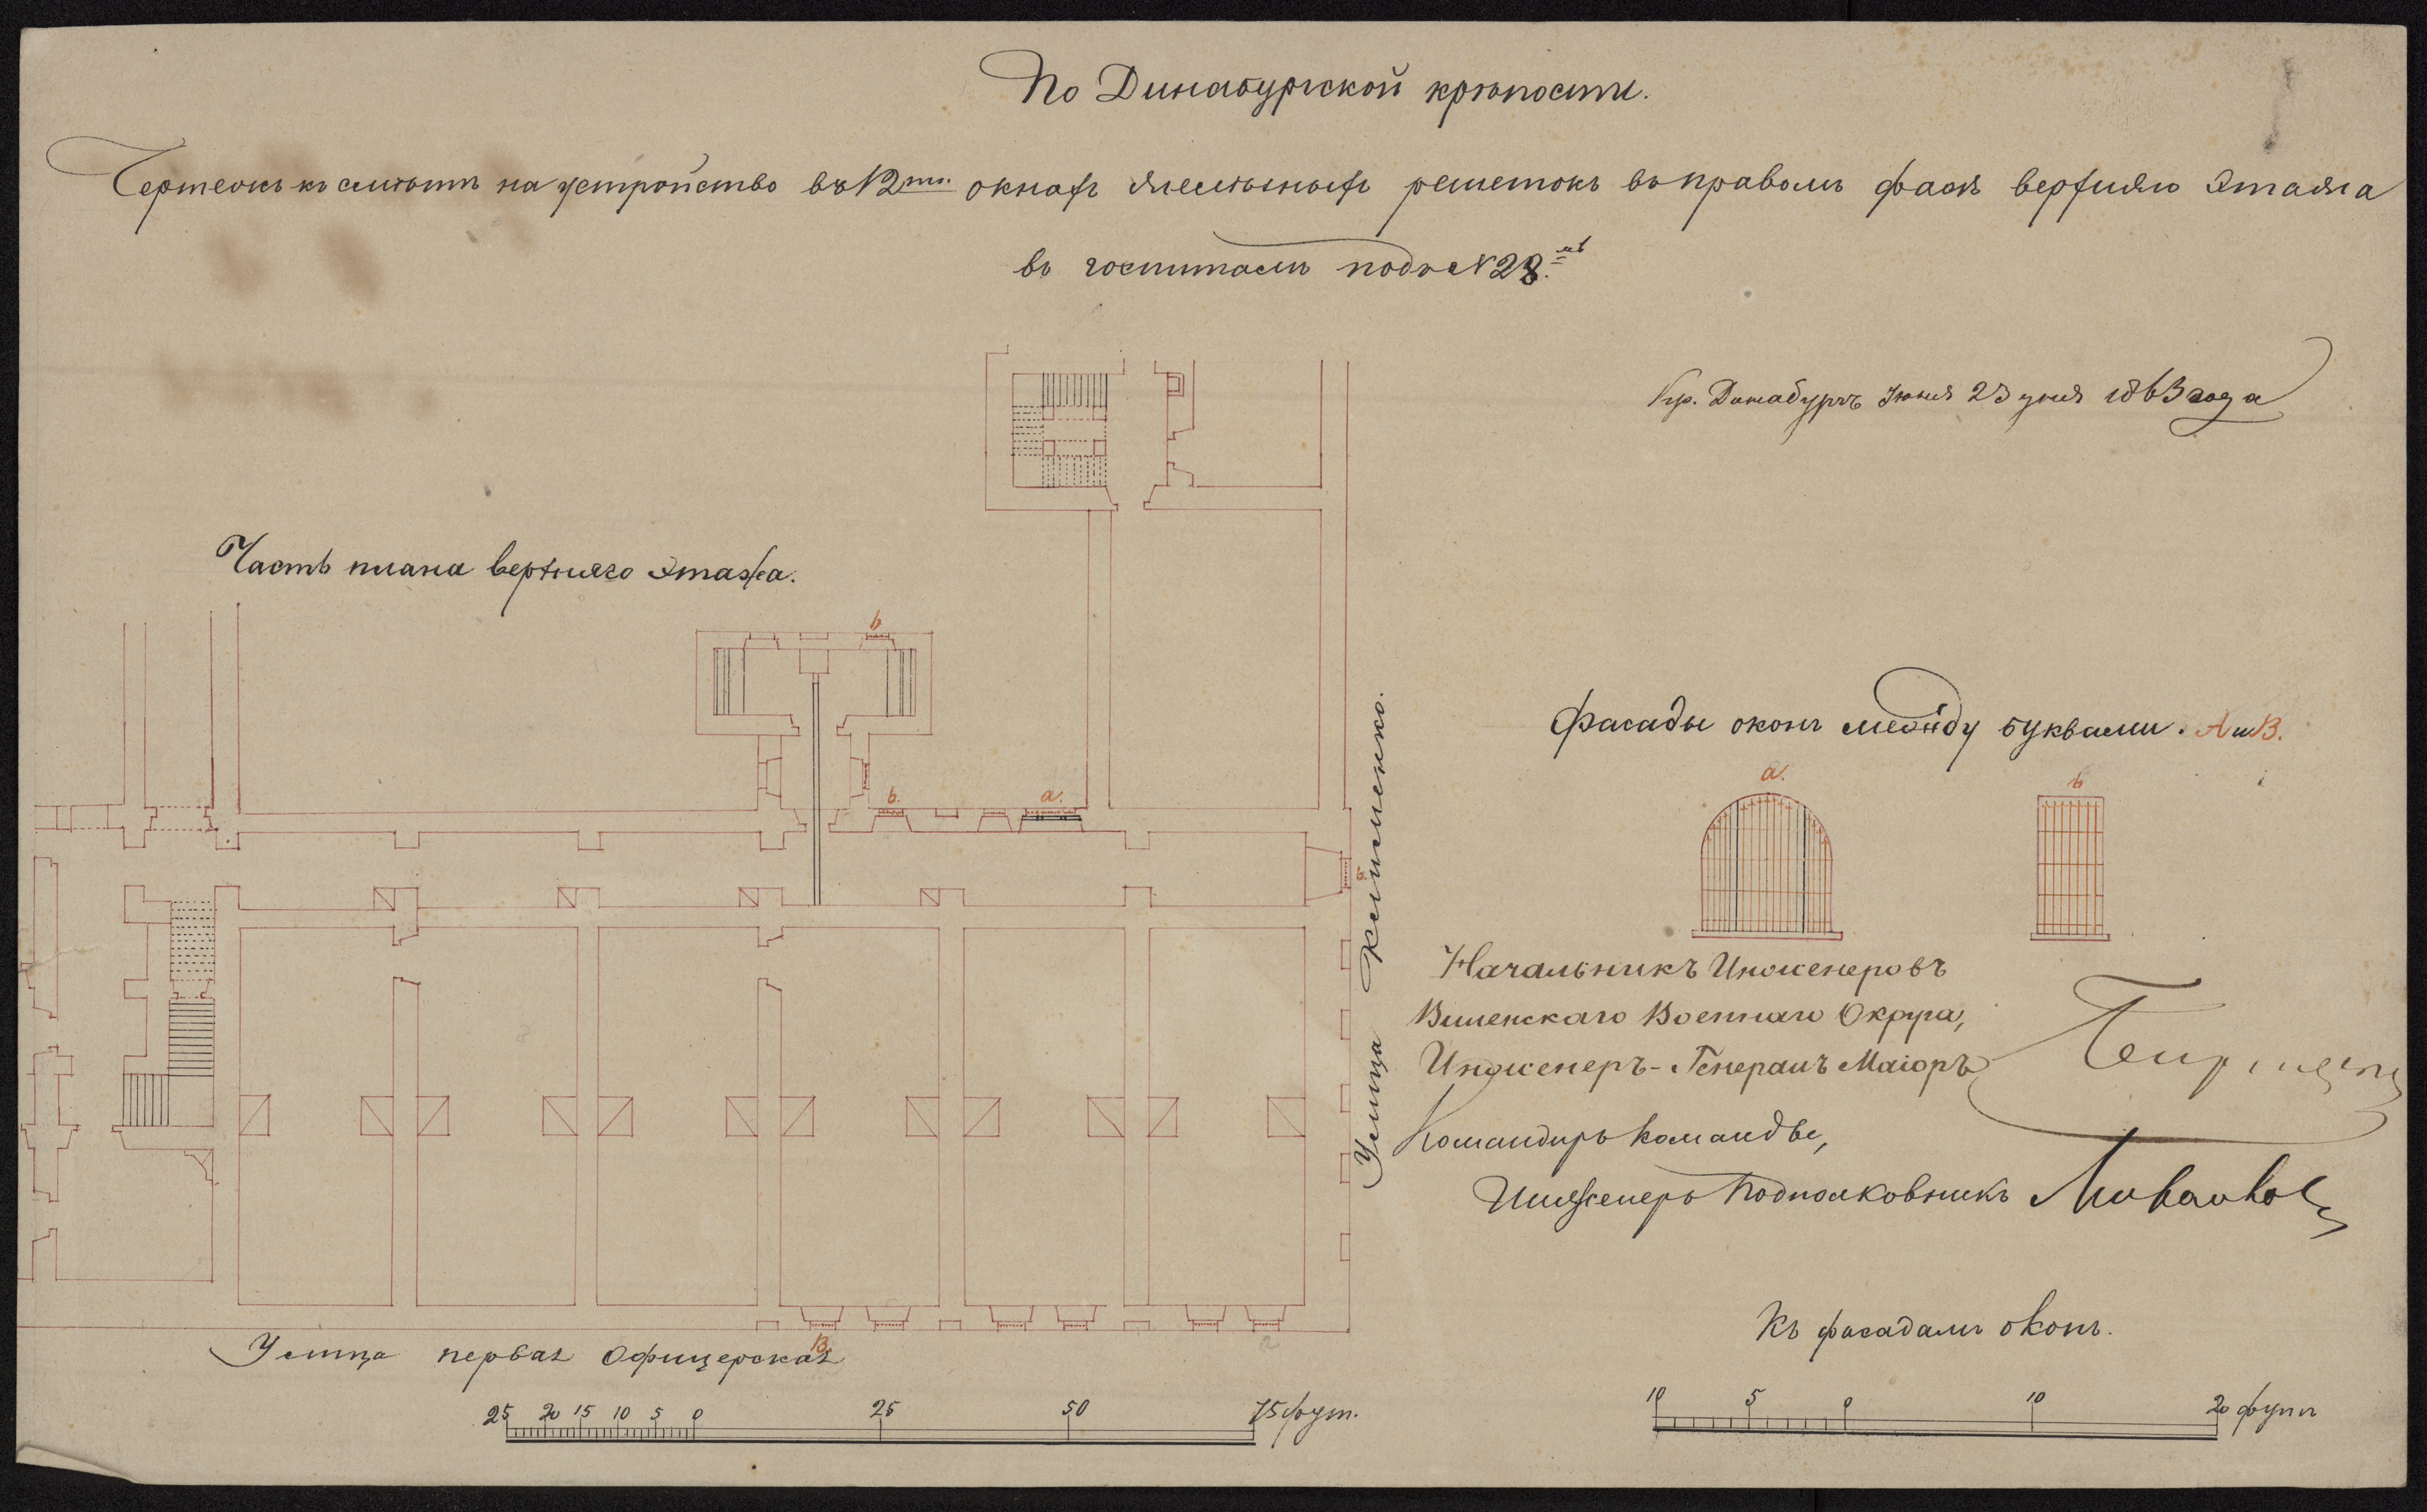 По Динабургской крѣпости.
Чертежъ къ смѣтѣ на устройство въ 12ти окнахъ желѣзныхъ решетокъ въ правомъ фасѣ верхняго этажа
въ госпиталѣ подъ № 28.мъ
Кр. Динабургъ Іюня 23 дня 1863 года
Часть плана верхняго этажа.
b
b.
a.
b.
Фасады оконъ между буквами. А и В.
a.
b
Улица
Начальникъ Инженеровъ
Виленскаго Военнаго Округа,
Инженеръ-Генералъ Маіоръ
Командиръ команды,
Инженеръ Подполковникъ
Улица первая Офицерская
В.
25 20 15 10 5 0 25 50 75 фут.
Къ фасадамъ оконъ.
10 5 0 10 20 футъ